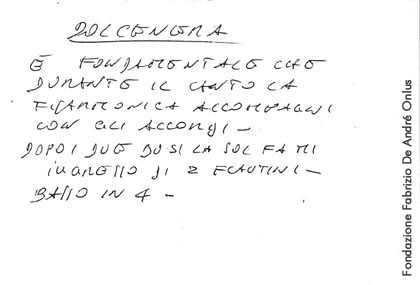 DOLCENERA
È FONDAMENTALE CHE
DURANTE IL CANTO LA
FISARMONICA ACCOMPAGNI
CON GLI ACCORDI –
DOPO I DUE DO SI LA SOL FA MI
INGRESSO DI 2 FLAUTINI –
BASSO IN 4 –
Fondazione Fabrizio De André Onlus